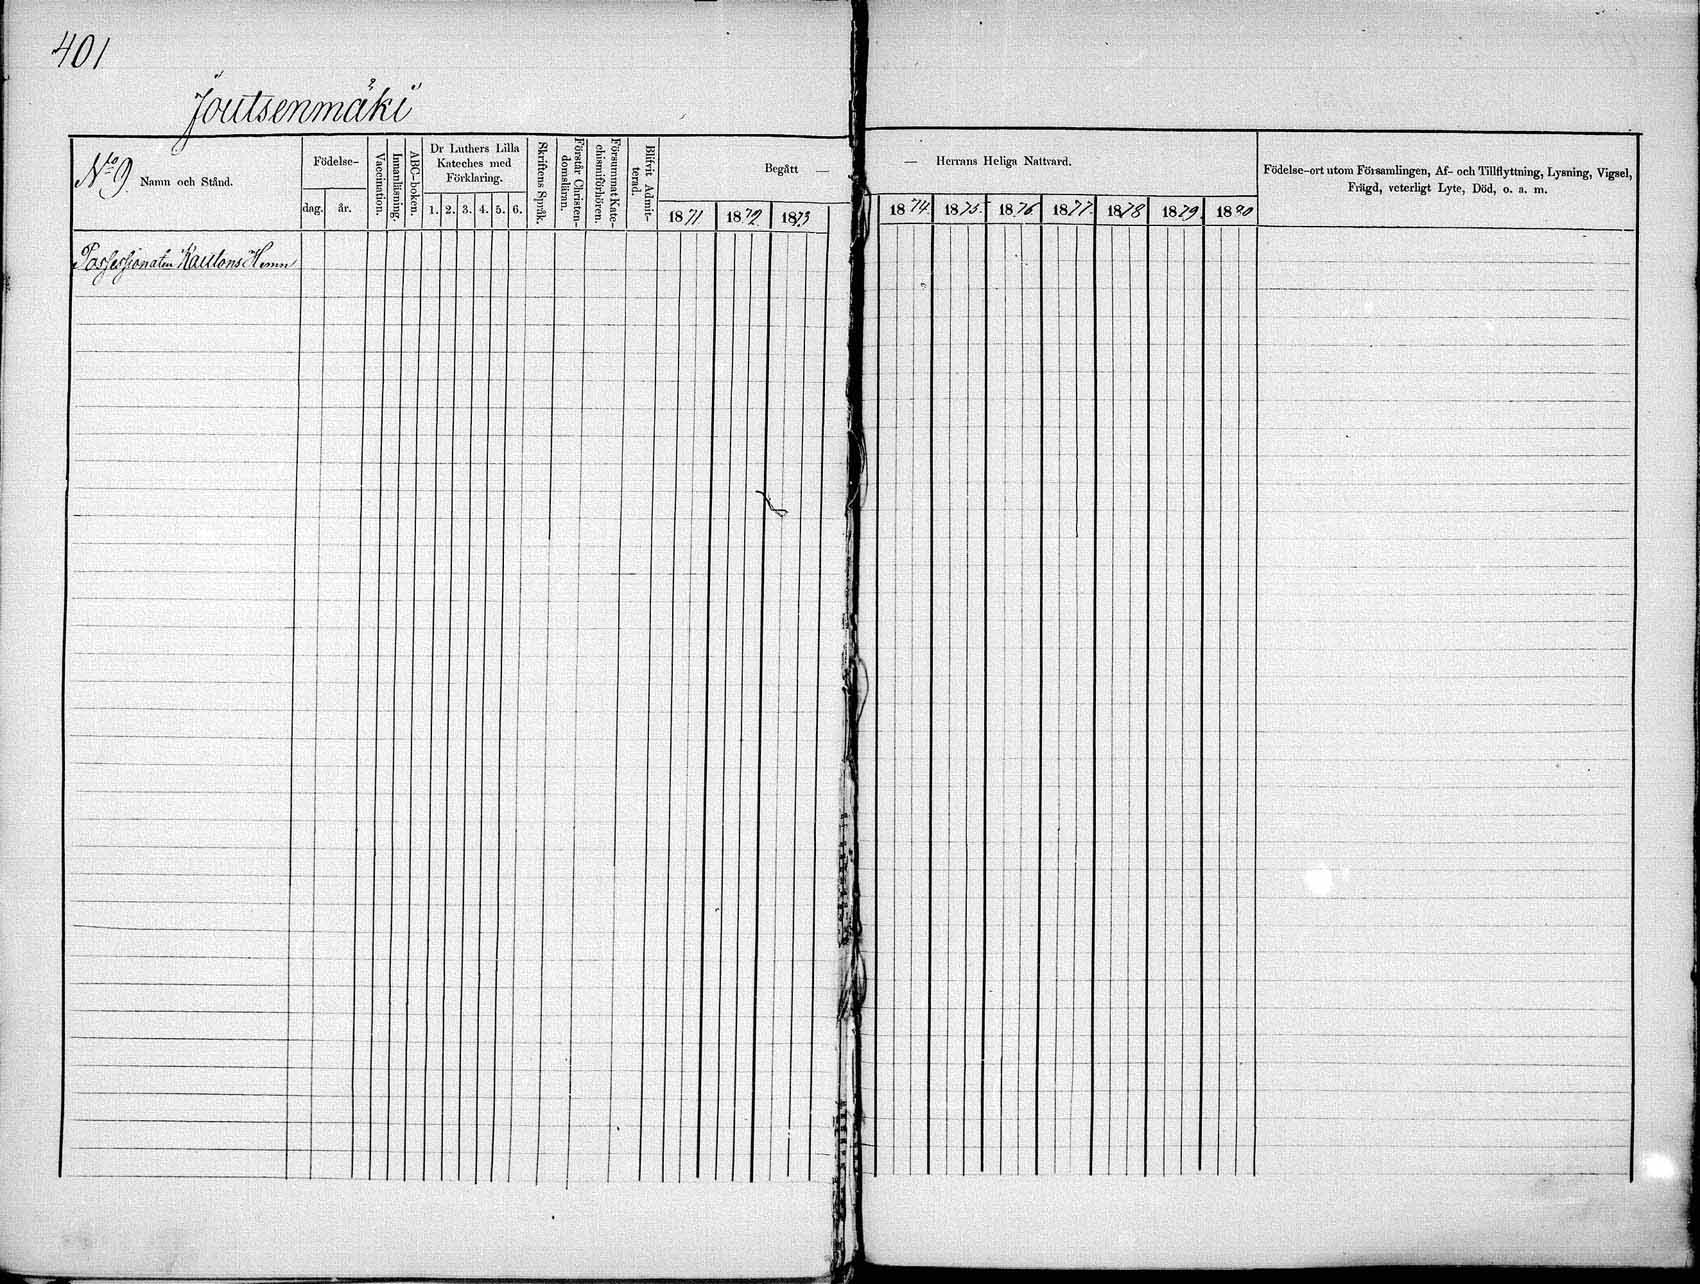 401
Joutsenmäki
No 9. Namn och Stånd.
Födelse-
dag. år.
Vaccination.
Innanläsning.
ABC-boken.
Dr Luthers Lilla
Kateches med
Förklaring.
1. 2. 3. 4. 5. 6.
Skriftens Språk.
Förstår Christen-
domsläran.
Försummat Kate-
chismiförhören.
Blifvit Admit-
terad.
Begått —
1871 1872. 1873
— Herrans Heliga Nattvard.
1874. 1875. 1876. 1877. 1878 1879. 1880
Födelse-ort utom Församlingen, Af- och Tillflyttning, Lysning, Vigsel,
Frägd, veterligt Lyte, Död, o. a. m.
Possessionaten Kaulons Hemn